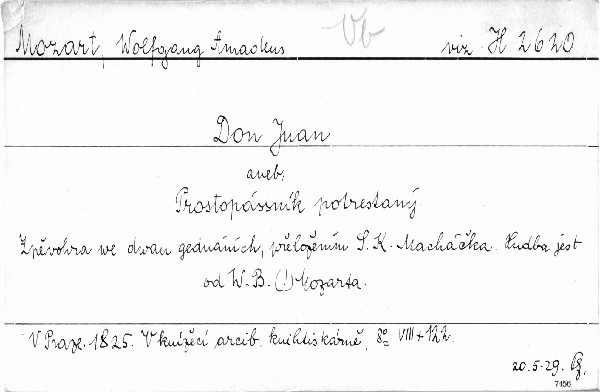 Mozart, Wolfgang Amadeus Vb viz H 2620
Don Juan
aneb:
Prostopássník potrestaný
Zpěvohra we dwau gednáních, přeložením S. K. Macháčka. Hudba jest
od W. B. (!) Mozarta.
V Praze. 1825. V knížecí arcib. knihtiskárně, 8º VIII + 122.
20.5.29.
7456